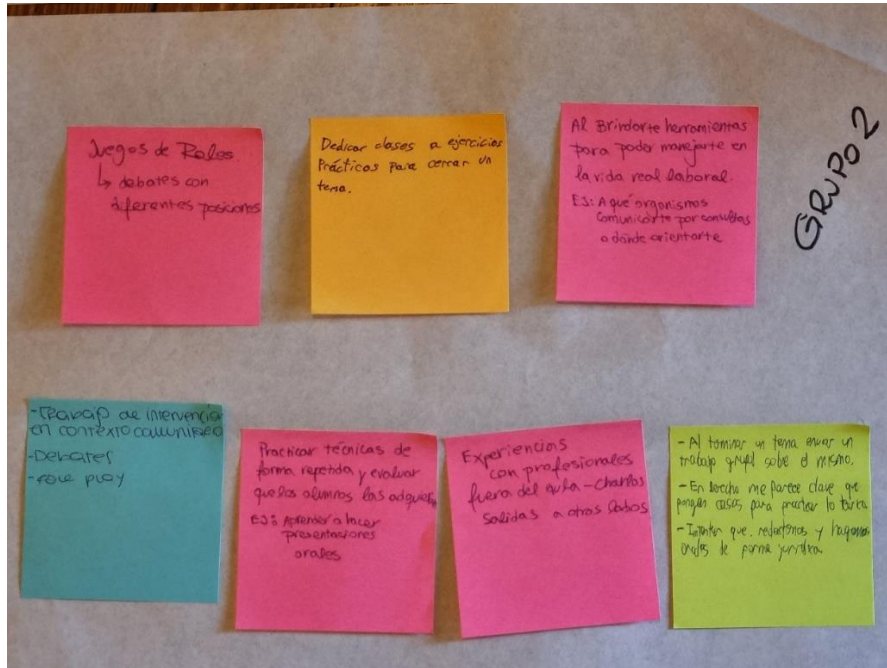 Juegos de Roles.
↳ debates con
diferentes posiciones
Dedicar clases a ejercicios
Prácticos para cerrar un
tema.
Al Brindarte herramientas
para poder manejarte en
la vida real laboral.
EJ: A qué organismos
comunicarte por consultas
a dónde orientarte
GRUPO 2
-Trabajo de intervención
en contexto comunitario
-Debates
-role play
Practicar técnicas de
forma repetida y evaluar
que los alumnos las adquieran
EJ: Aprender a hacer
presentaciones
orales
Experiencias
con profesionales
fuera del aula - charlas
salidas a otros
- Al terminar un tema enviar un
trabajo grupal sobre el mismo.
- En derecho me parece clave que
pongan casos para practicar lo
- Intentar que redactemos y hagamos
orales de forma jurídica.